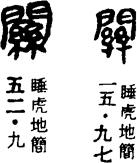 睡虎地簡
一五·九七
睡虎地簡
五二·九